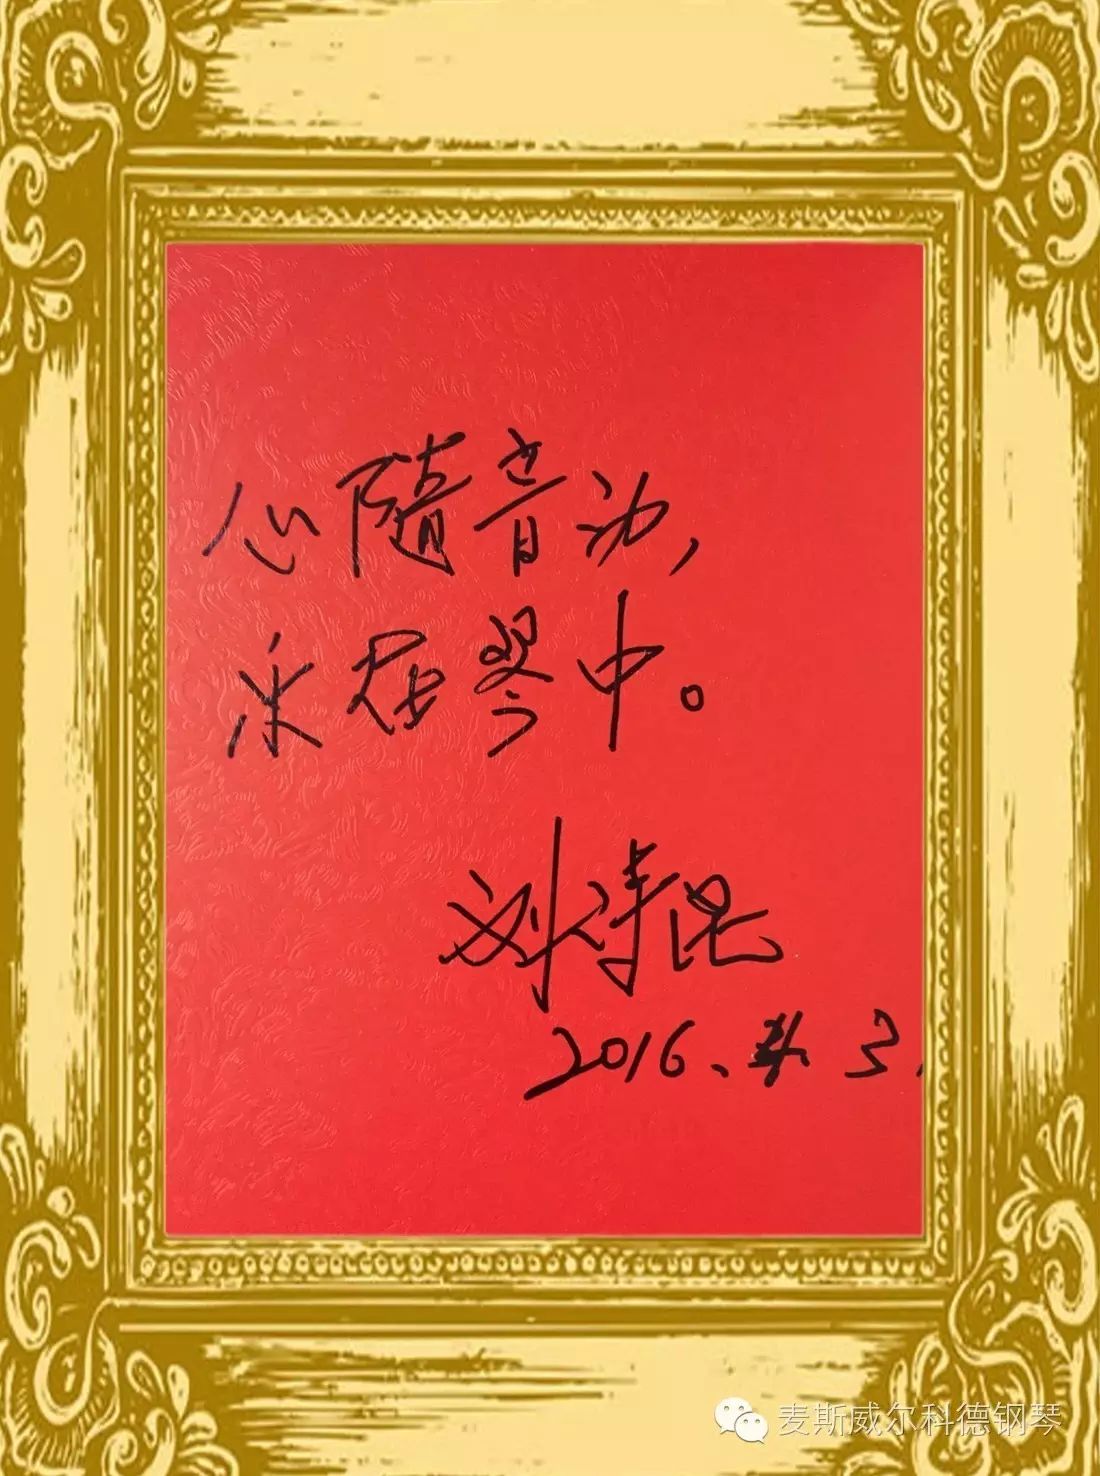 心隨音动，
乐在琴中。
刘诗昆
2016、 3.
麦斯威尔科德钢琴